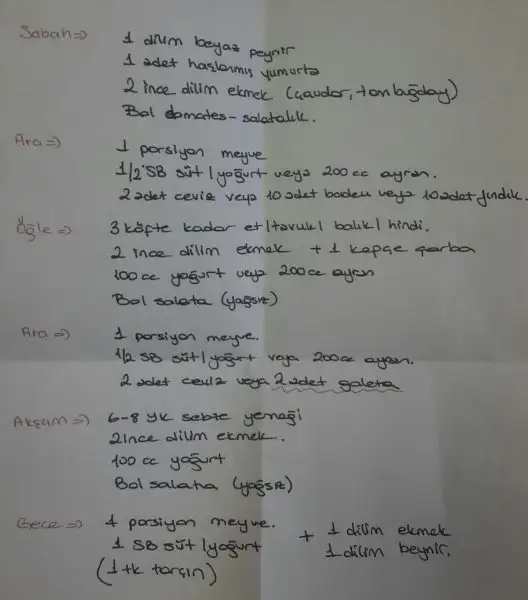 Sabah => 1 dilim beyaz peynir
1 adet haşlanmış yumurta
2 ince dilim ekmek (çavdar, tam buğday)
Bol domates - salatalık.
Ara => 1 porsiyon meyve
1/2 SB süt / yoğurt veya 200 cc ayran.
2 adet ceviz veya 10 adet badem veya 10 adet fındık.
Öğle => 3 köfte kadar et / tavuk / balık / hindi.
2 ince dilim ekmek + 1 kepçe çorba
100 cc yoğurt veya 200 cc ayran
Bol salata (yağsız)
Ara => 1 porsiyon meyve.
1/2 SB süt / yoğurt veya 200 cc ayran.
2 adet ceviz veya 2 adet galeta
Akşam => 6-8 yk sebze yemeği
2 ince dilim ekmek.
100 cc yoğurt
Bol salata (yağsız)
Gece => 1 porsiyon meyve. + 1 dilim ekmek
1 SB süt / yoğurt 1 dilim beynir.
(1 tk tarçın)